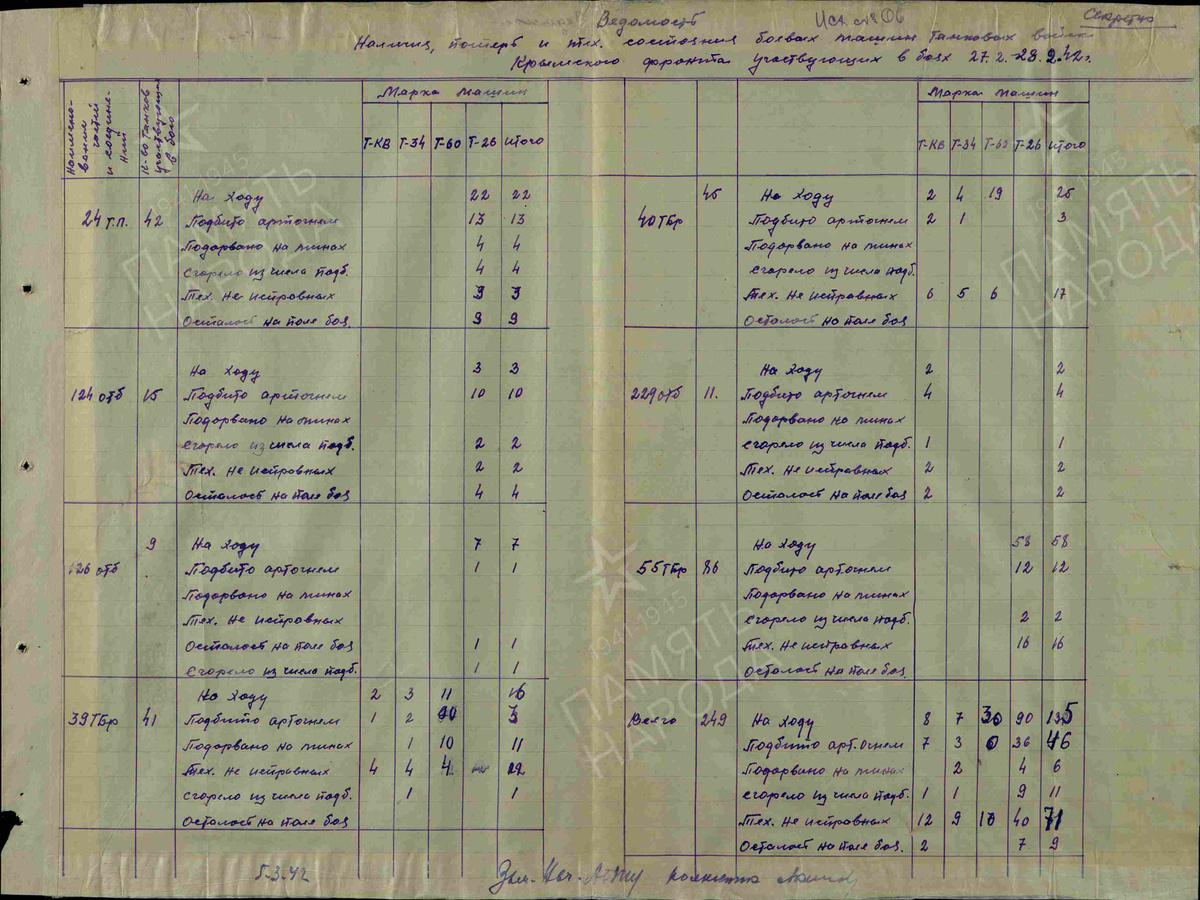 Ведомость Исх. № 06 Секретно
Наличия, потерь и тех. состояния боевых машин танковых войск
Крымского фронта участвующих в боях 27.2.-28.2.42г.
Наимено-
вание
частей
и соедине-
ний
к-во танков
участвующих
в бою
Марка машин
Т-КВ Т-34 Т-60 Т-26 итого
24 т.п. 42 На ходу 22 22
Подбито артогнем 13 13
Подорвано на минах 4 4
Сгорело из числа подб. 4 4
Тех. не исправных 3 3
Осталось на поле боя 9 9
124 отб 15 На ходу 3 3
Подбито артогнем 10 10
Подорвано на минах
Сгорело из числа подб. 2 2
Тех. не исправных 2 2
Осталось на поле боя 4 4
126 отб 9 На ходу 7 7
Подбито артогнем 1 1
Подорвано на минах
Тех. не исправных
Осталось на поле боя 1 1
Сгорело из числа подб. 1 1
39 ТБр 41 На ходу 2 3 11 16
Подбито артогнем 1 2 3
Подорвано на минах 1 10 11
Тех. не исправных 4 4 4
Сгорело из числа подб. 1 1
Осталось на поле боя
Марка машин
Т-КВ Т-34 Т-60 Т-26 итого
40 ТБр 45 На ходу 2 4 19 25
Подбито артогнем 2 1 3
Подорвано на минах
Сгорело из числа подб.
Тех. не исправных 6 5 6 17
Осталось на поле боя
229 отб 11. На ходу 2 2
Подбито артогнем 4 4
Подорвано на минах
Сгорело из числа подб. 1 1
Тех. не исправных 2 2
Осталось на поле боя 2 2
55 ТБр 86 На ходу 58 58
Подбито артогнем 12 12
Подорвано на минах
Сгорело из числа подб. 2 2
Тех. не исправных 16 16
Осталось на поле боя
Всего 249 На ходу 8 7 30 90 135
Подбито арт.огнем 7 3 0 36 46
Подорвано на минах 2 4 6
Сгорело из числа подб. 1 1 9 11
Тех. не исправных 12 9 10 40 71
Осталось на поле боя. 2 7 9
5.3.42 Зам. Нач.
ПАМЯТЬ
НАРОДА
1941-1945